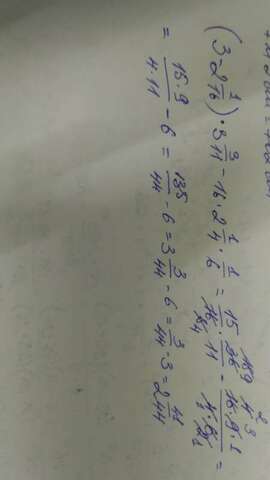 (3-2 1/16)·3 3/11-16·2 1/4·1/6 = 15/16·36/11 - 16·9·1/4·6 =
= 15·9/4·11 - 6 = 135/44 - 6 = 3 3/44 - 6 = 3/44 - 3 = 2 41/44